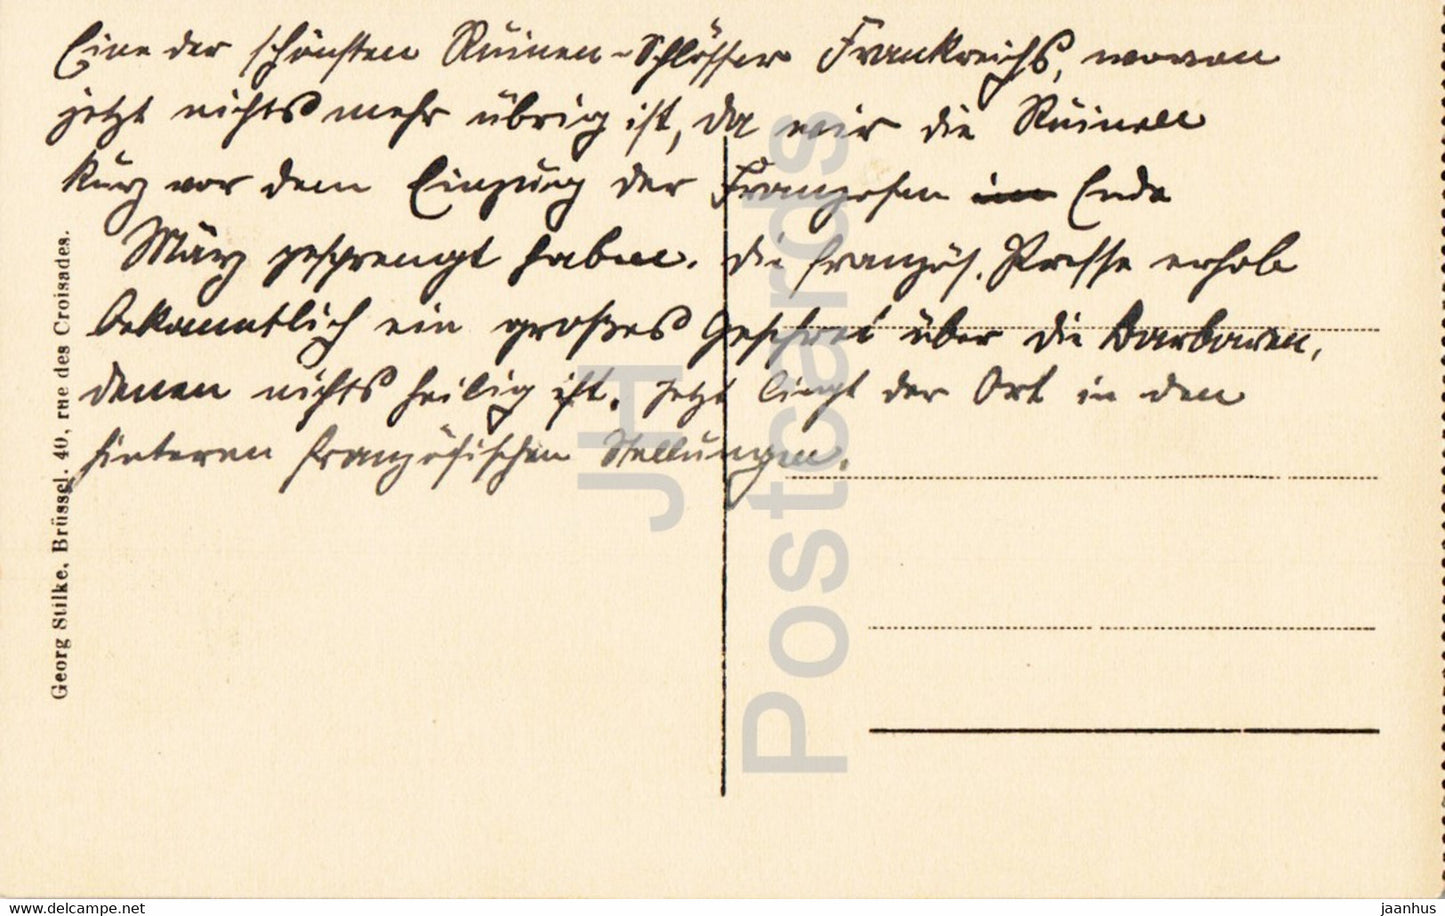 Eine der schönsten Ruinen-Schlösser Frankreichs, wovon
jetzt nichts mehr übrig ist, da wir die Ruinen
kurz vor dem Einzug der Franzosen im Ende
März gesprengt haben. Die französ. Presse erhob
bekanntlich ein großes Geschrei über die Barbaren,
denen nichts heilig ist. Jetzt liegt der Ort in den
hinteren französischen Stellungen.
Georg Stilke, Brüssel, 40, rue des Croisades.
JH
Postcards
www.delcampe.net
jaanhus